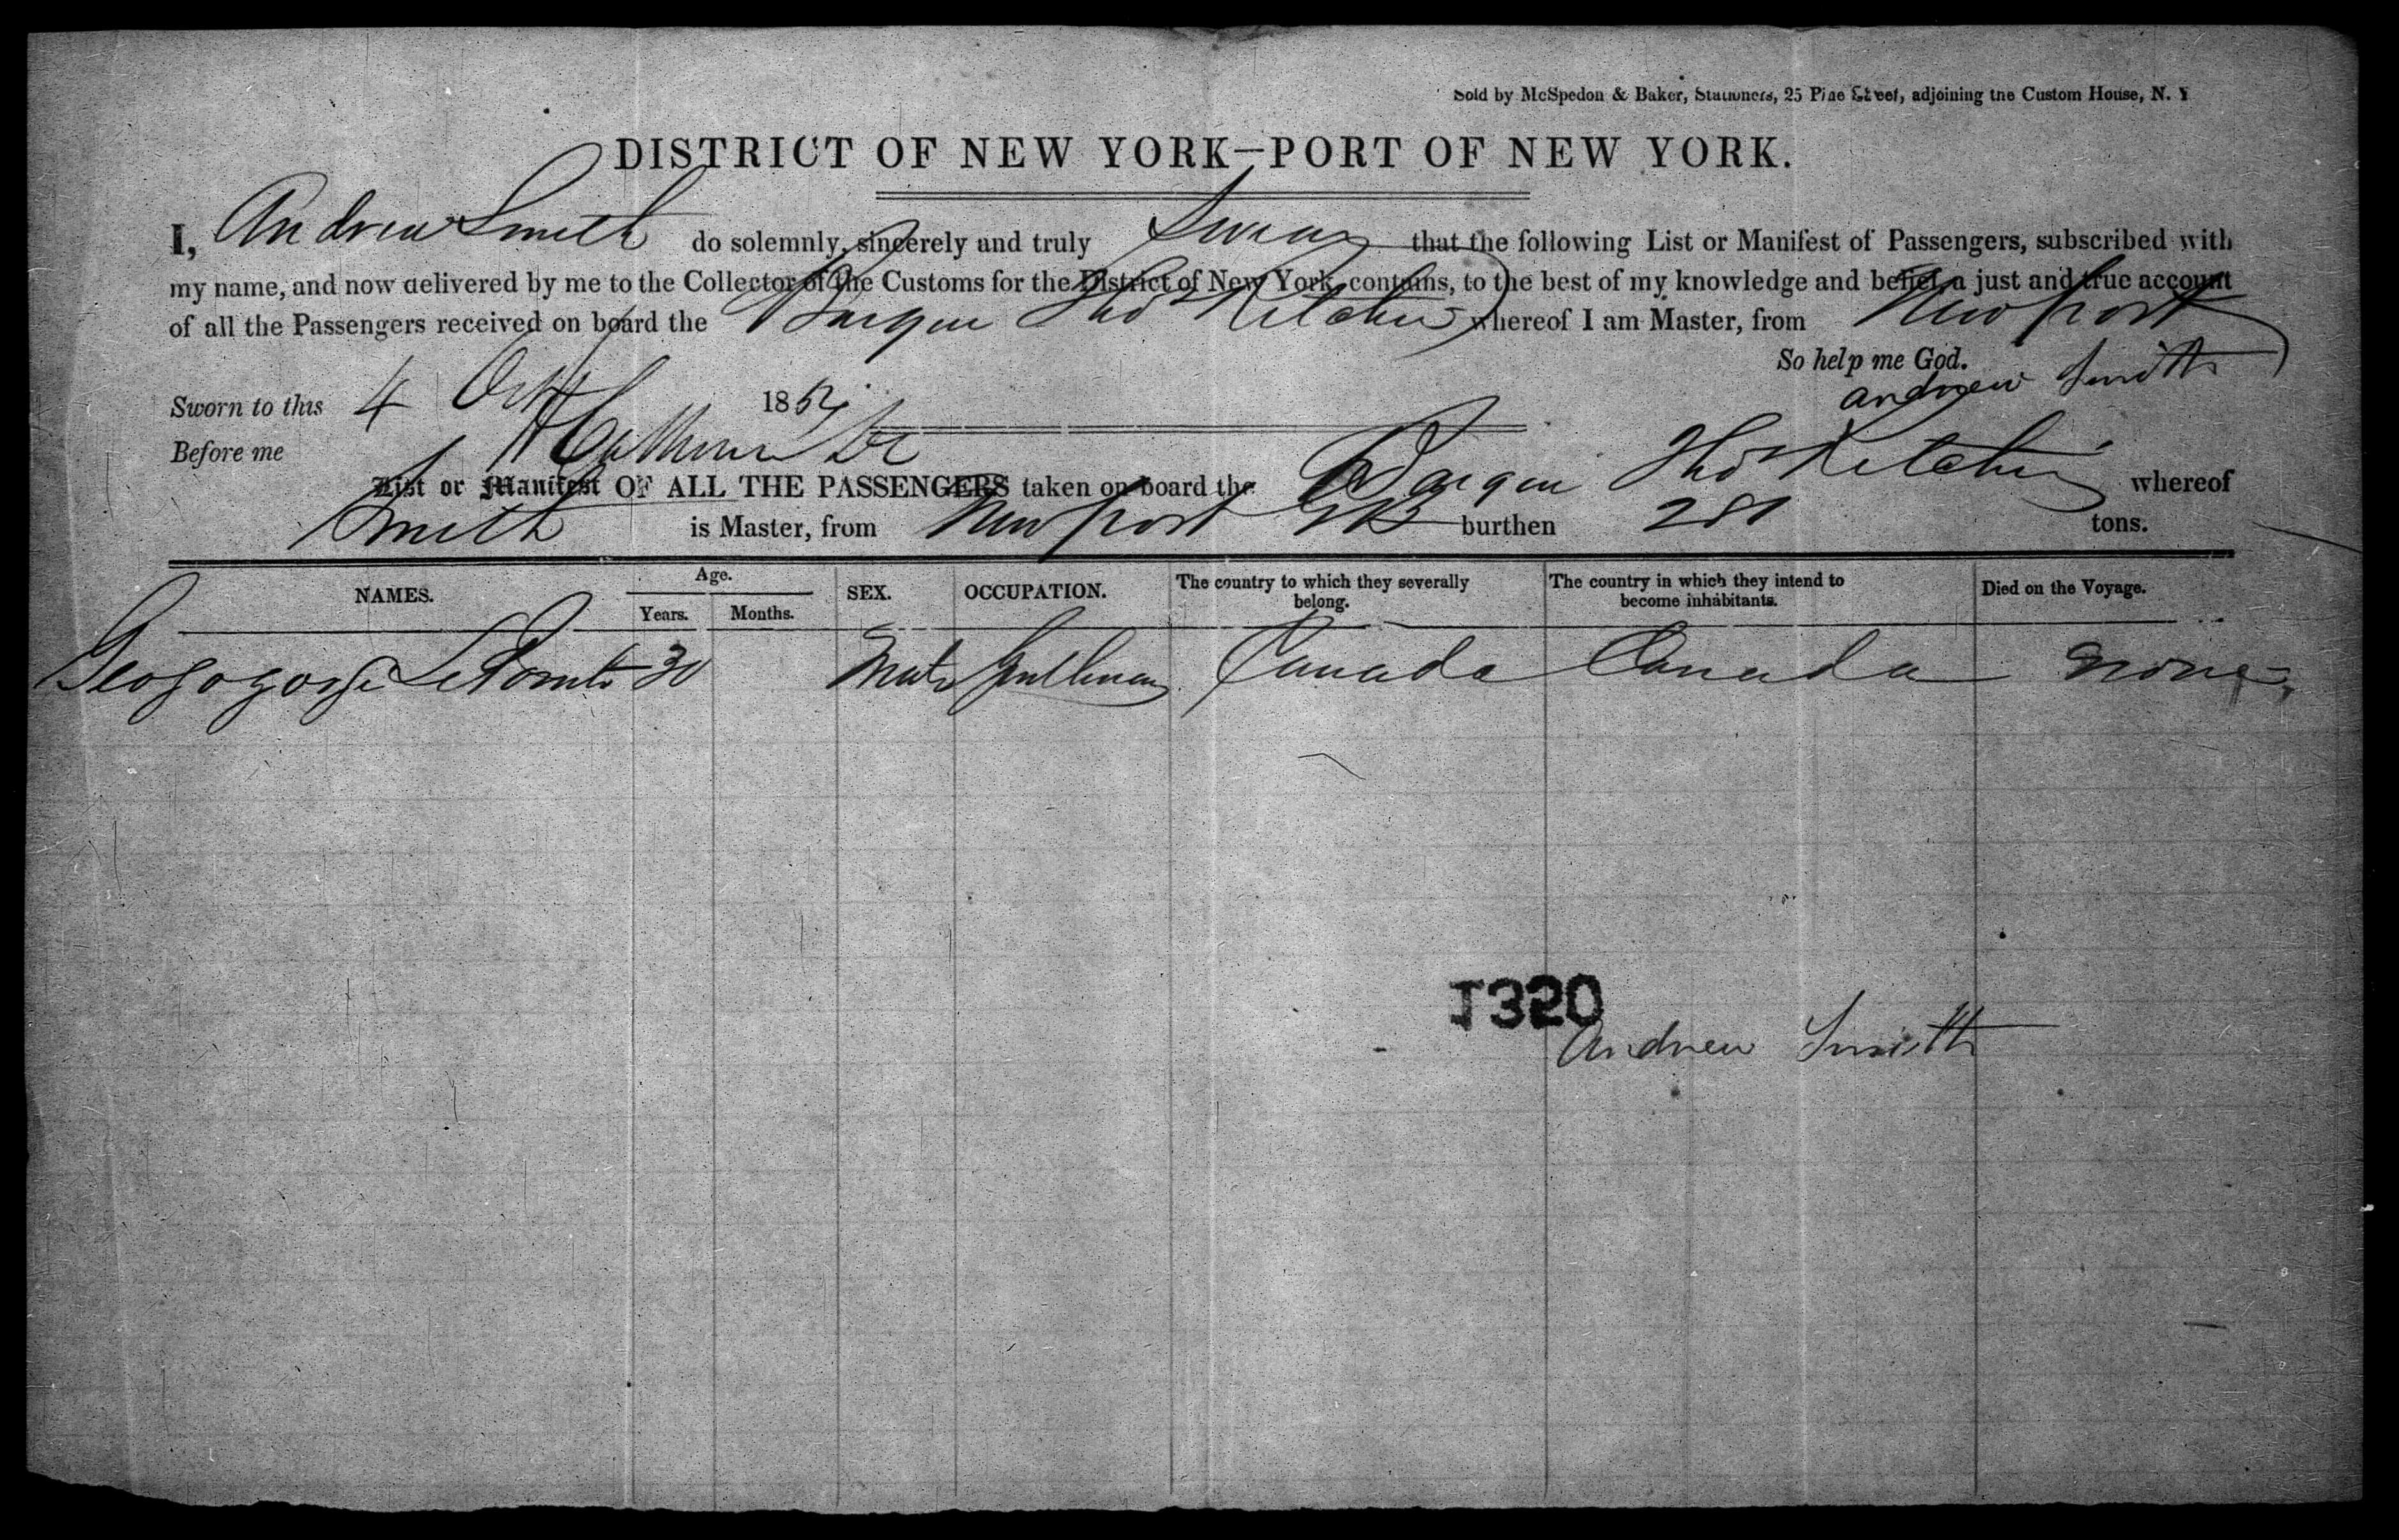 Sold by McSpedon & Baker, Stationers, 25 Pine Street, adjoining the Custom House, N. Y
DISTRICT OF NEW YORK—PORT OF NEW YORK.
I, Andrew Smith do solemnly, sincerely and truly Swear that the following List or Manifest of Passengers, subscribed with
my name, and now delivered by me to the Collector of the Customs for the District of New York, contains, to the best of my knowledge and belief, a just and true account
of all the Passengers received on board the Barque Thos Kitchin whereof I am Master, from Newport
So help me God.
Andrew Smith
Sworn to this 4 Oct 185
Before me
List or Manifest OF ALL THE PASSENGERS taken on board the Barque Thos Kitchin whereof
Smith is Master, from Newport GB burthen 281 tons.
NAMES. Age. SEX. OCCUPATION. The country to which they severally belong. The country in which they intend to become inhabitants. Died on the Voyage.
Years. Months.
30 Male Gentleman Canada Canada None
1320
Andrew Smith